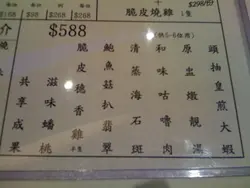 $168 $98 $268 $268
脆皮燒雞 1隻
$298/份
介 $588 (供5-6位用)
頭抽皇煎大蝦
原盅靚湯
和味咕嚕肉
清蒸海石斑
鮑魚菇扒翡翠
脆皮德香雞 半隻
滋味蟠桃
共享成果